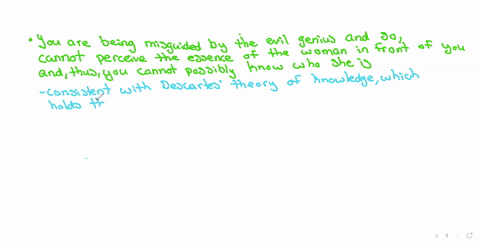 • You are being misguided by the evil genius and so,
cannot perceive the essence of the woman in front of you
and, thus, you cannot possibly know who she is
-consistent with Descartes' theory of knowledge, which
holds